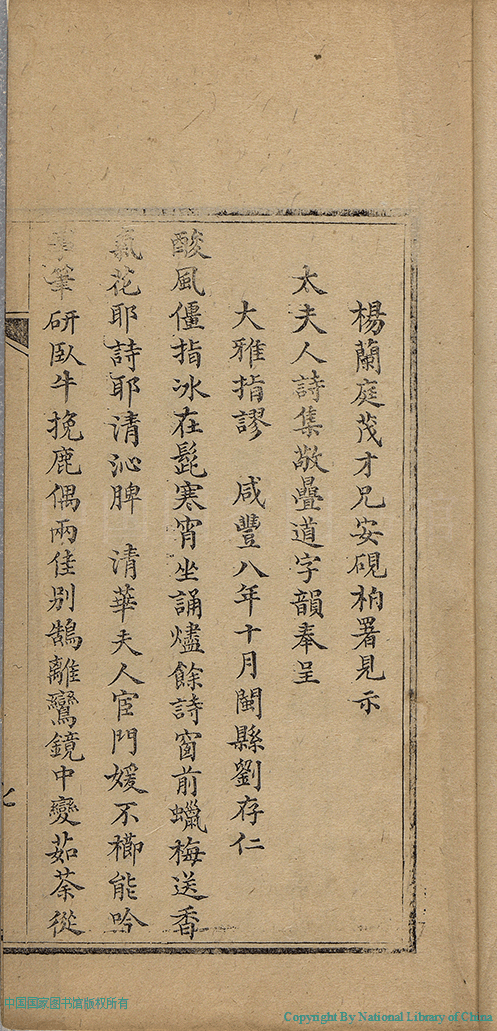 楊蘭庭茂才兄安硯柏署見示
太夫人詩集敬疊道字韻奉呈
大雅指謬　咸豐八年十月閩縣劉存仁
酸風僵指冰在髭寒宵坐誦燼餘詩窗前蠟梅送香
氣花耶詩耶清沁脾　清華夫人宦門媛不櫛能吟
筆研臥牛挽鹿偶兩佳別鵠離鸞鏡中變茹荼從
七
中国国家图书馆版权所有
Copyright By National Library of China